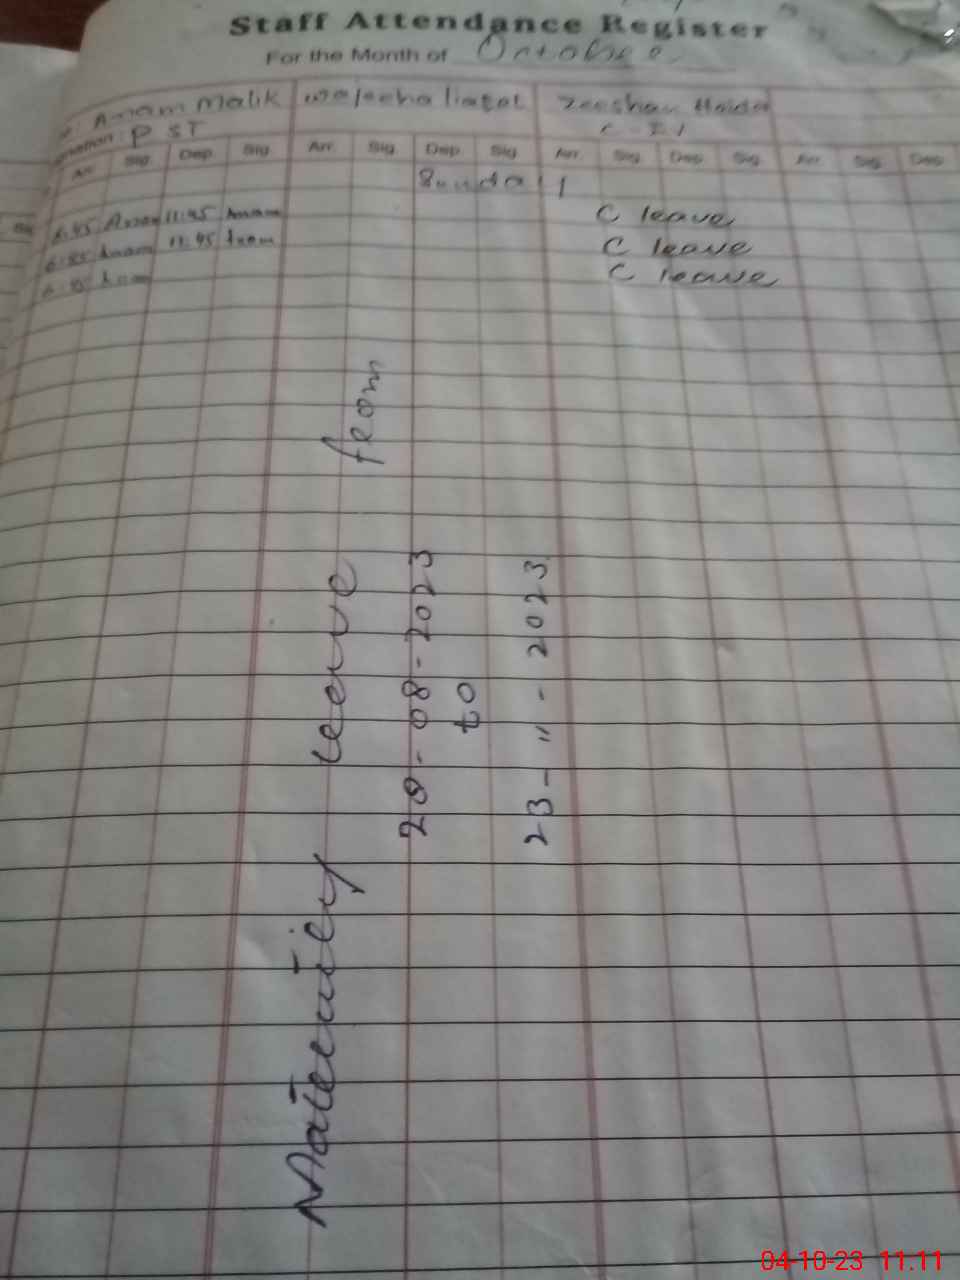 Staff Attendance Register
For the Month of October
Anam Malik
PST
Zeeshan Haider
Arr. Sig Dep Sig Arr. Sig Dep Sig Arr. Sig Dep Sig Arr. Sig Dep
Sunday
6:45 Anam 11:45 Anam C leave
11:45 Anam C leave
C leave
Maternity leave from
29-08-2023
to
23-11-2023
04-10-23 11.11